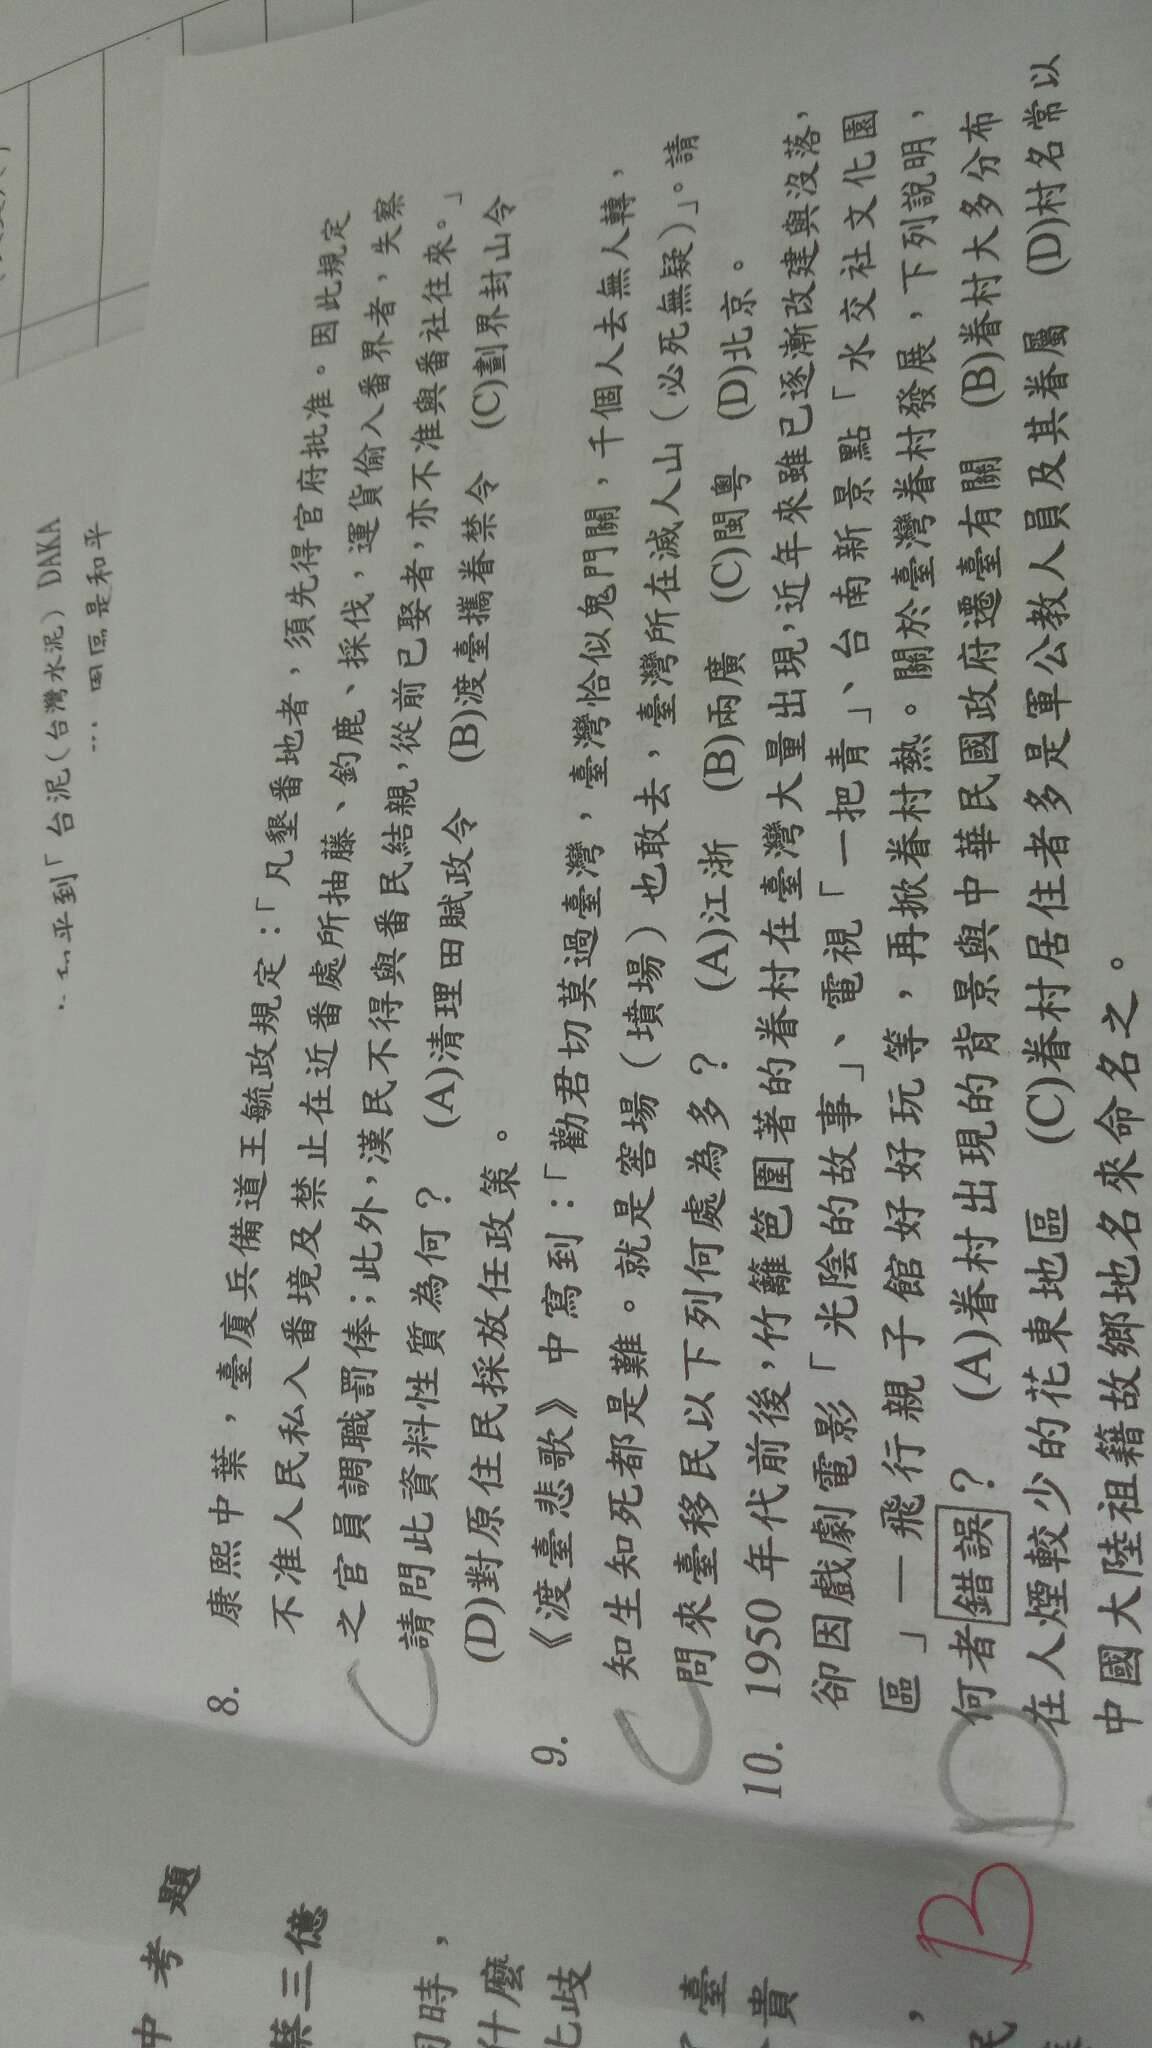 乎到「台泥(台灣水泥) DAKA
… 園區是和平
8. 康熙中葉,臺廈兵備道王毓政規定:「凡墾番地者,須先得官府批准。因此規定
不准人民私入番境及禁止在近番處所抽藤、釣鹿、採伐,運貨偷入番界者,失察
之官員調職罰俸;此外,漢民不得與番民結親,從前已娶者,亦不准與番社往來。」
請問此資料性質為何? (A)清理田賦政令 (B)渡臺攜眷禁令 (C)劃界封山令
(D)對原住民採放任政策。
C
9. 《渡臺悲歌》中寫到:「勸君切莫過臺灣,臺灣恰似鬼門關,千個人去無人轉,
知生知死都是難。就是窖場(墳場)也敢去,臺灣所在滅人山(必死無疑)」。請
問來臺移民以下列何處為多? (A)江浙 (B)兩廣 (C)閩粵 (D)北京。
C
10. 1950 年代前後,竹籬笆圍著的眷村在臺灣大量出現,近年來雖已逐漸改建與沒落,
卻因戲劇電影「光陰的故事」、電視「一把青」、台南新景點「水交社文化園
區」—飛行親子館好好玩等,再掀眷村熱。關於臺灣眷村發展,下列說明,
何者錯誤? (A)眷村出現的背景與中華民國政府遷臺有關 (B)眷村大多分布
在人煙較少的花東地區 (C)眷村居住者多是軍公教人員及其眷屬 (D)村名常以
中國大陸祖籍故鄉地名來命名之。
D
B
中考題
蔡三億
同時,
什麼
歧
臺
貴
,
民